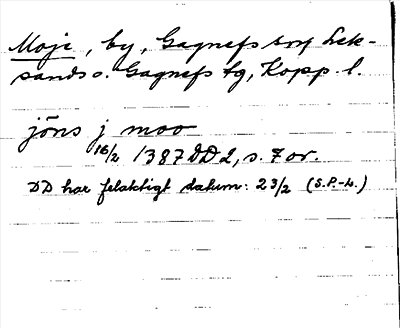 Moje, by, Gagnefs sn Lek-
sands o. Gagnefs tg, Kopp. l.
jöns j moo
16/2 1387 DD 2, s. 7 or.
DD har felaktigt datum: 23/2 (S.P.-L.)